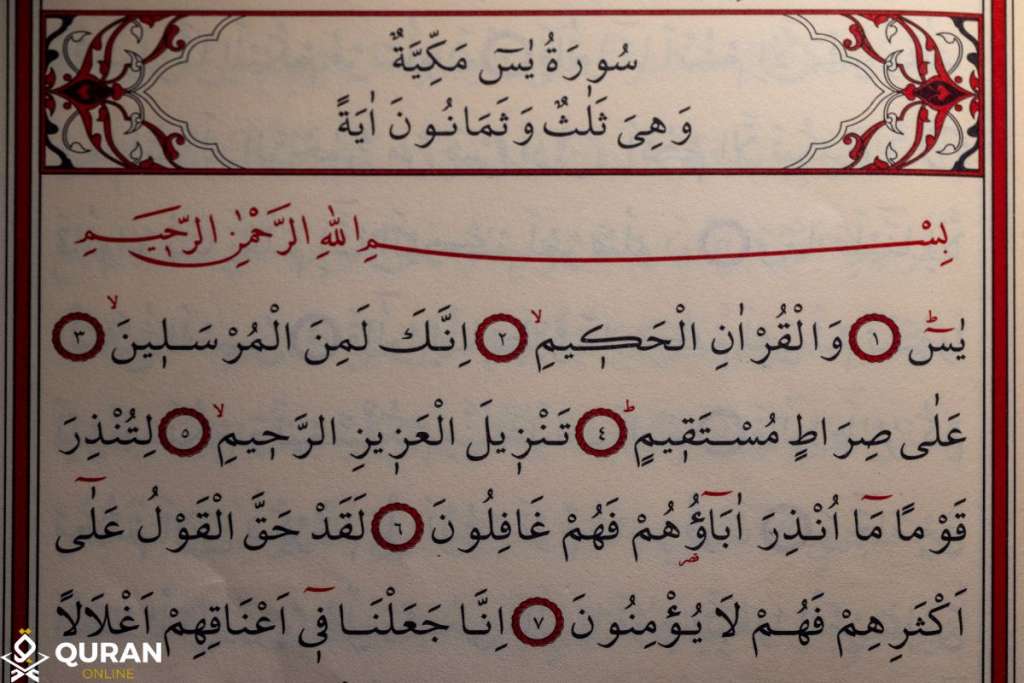 سُورَةُ يٰسٓ مَكِّيَّةٌ
وَهِىَ ثَلٰثٌ وَثَمَانُونَ اٰيَةً
بِسْمِ اللهِ الرَّحْمٰنِ الرَّحِيمِ
يٰسٓ ۚ ١ وَالْقُرْاٰنِ الْحَكِيمِ ۙ ٢ اِنَّكَ لَمِنَ الْمُرْسَلِينَ ۙ ٣
عَلٰى صِرَاطٍ مُسْتَقِيمٍ ۜ ٤ تَنْزِيلَ الْعَزِيزِ الرَّحِيمِ ۙ ٥ لِتُنْذِرَ
قَوْمًا مَٓا اُنْذِرَ اٰبَٓاؤُ۬هُمْ فَهُمْ غَافِلُونَ ٦ لَقَدْ حَقَّ الْقَوْلُ عَلٰٓى
اَكْثَرِهِمْ فَهُمْ لَا يُؤْمِنُونَ ٧ اِنَّا جَعَلْنَا فِٓى اَعْنَاقِهِمْ اَغْلَالًا
QURAN
ONLINE